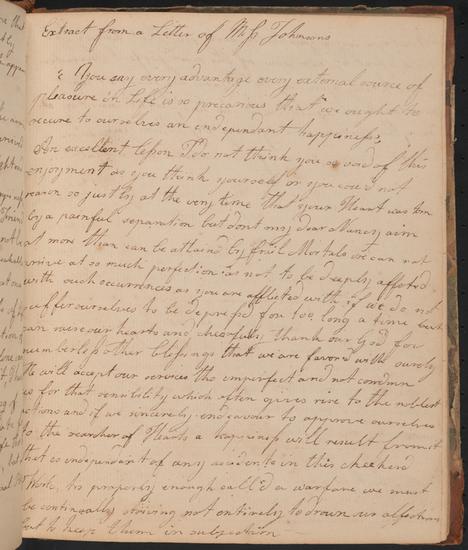 Extract from a Letter of Miss Johnsons
" You say every advantage every external source of
pleasure in Life is so precarious that we ought to
secure to ourselves an independant happiness,
An excellent lesson I do not think you so void of this
enjoyment as you think yourself or you coud not
reason so justly at the very time that your Heart was torn
by a painful separation but dont my dear Nancy aim
at more than can be attained by frail Mortals we can not
arrive at so much perfection as not to be deeply affected
with such occurrences as you are afflicted with if we do not
suffer ourselves to be depress'd for too long a time but
can raise our hearts and chearfully thank our God for
numberless other blessings that we are favord with surely
He will accept our services tho imperfect and not condemn
us for that sensibility which often gives rise to the noblest
actions and if we sincerely endeavour to approve ourselves
to the searcher of Hearts a happiness will result from it
that is independant of any accidents in this checkerd
World, tis properly enough call'd a warfare we must
be continually striving not entirely to drown our affections
but to keep them in subjection